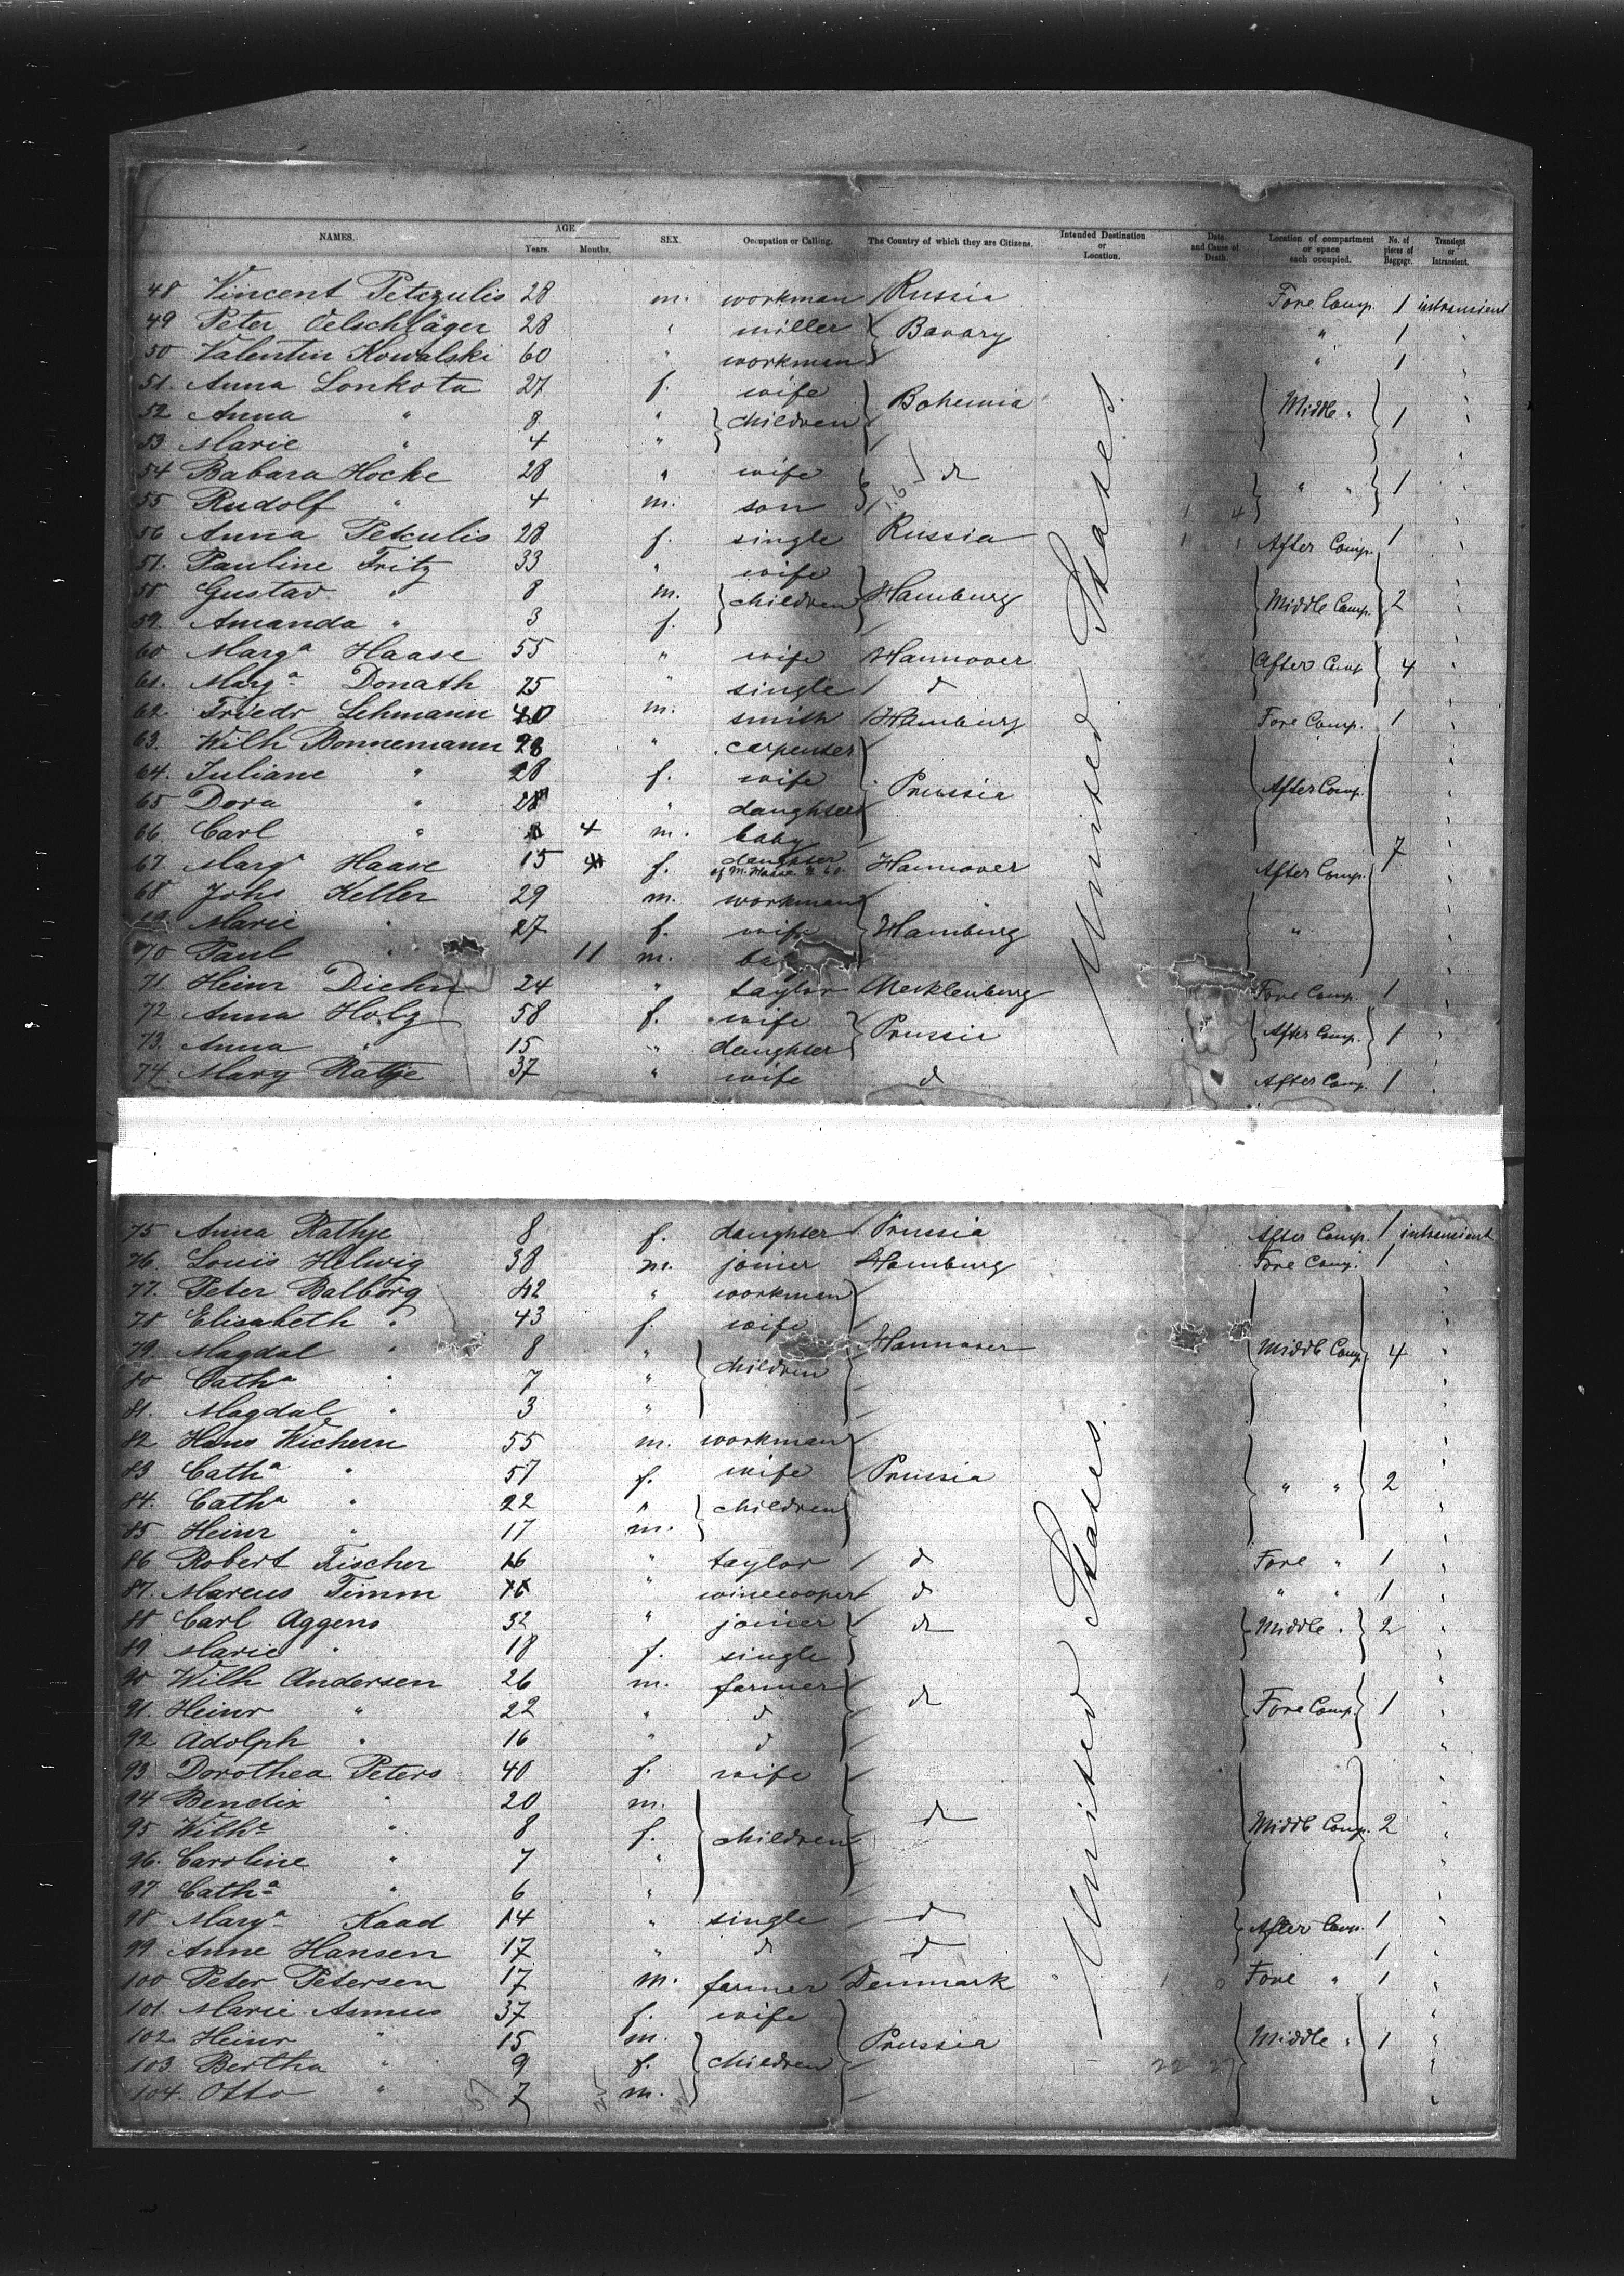 NAMES. AGE. Years. Months. SEX. Occupation or Calling. The Country of which they are Citizens. Intended Destination or Location. Date and Cause of Death. Location of compartment or space each occupied. No. of pieces of Baggage. Transient or Intransient.
48 Vincent Petczulis 28 m. workman Russia Fore Comp. 1 intransient
49 Peter Oelschläger 28 " miller } Bavary " 1 "
50 Valentin Kowalski 60 " workman " 1 "
51. Anna Lonkota 27 f. wife } Bohemia } Middle " } 1 "
52 Anna " 8 " } children "
53 Marie " 4 " "
54 Babara Hocke 28 " wife } d } " " } 1 "
55 Rudolf " 4 m. son "
56 Anna Petculis 28 f. single Russia After Comp. 1 "
57. Pauline Fritz 33 " wife } Hamburg } Middle Comp. } 2 "
58 Gustav " 8 m. } children "
59. Amanda " 3 f. "
60 Marga Haase 55 " wife Hannover } After Comp } 4 "
61. Marga Donath 25 " single d "
62. Friedr Lehmann 40 m. smith Hamburg Fore Comp. 1 "
63. Wilh Bonnemann 28 " carpenter } Prussia } After Comp. } 7 "
64. Juliane " 28 f. wife "
65 Dora " " daughter "
66 Carl " 4 m. baby "
67. Marga Haase 15 f. daughter of M. Haase N 60. Hannover After Comp. "
68 Johs Keller 29 m. workman } Hamburg } " "
69. Marie " 27 f. wife "
70 Paul " 11 m. ba "
71. Heinr Diehn 24 " taylor Mecklenburg Fore Comp. 1 "
72. Anna Holz 58 f. wife } Prussia } After Comp. } 1 "
73. Anna " 15 " daughter "
74 Marg Rathje 37 " wife d After Comp. 1 "
United States.
75 Anna Rathje 8 f. daughter Prussia After Comp. 1 intransient
76. Louis Helwig 38 m. joiner Hamburg Fore Comp. 1 "
77. Peter Balborg 42 " workman } Hannover } Middle Comp. } 4 "
78 Elisabeth " 43 f. wife "
79. Magdal " 8 " } children "
80 Catha " 7 " "
81. Magdal " 3 " "
82 Hans Wichern 55 m. workman } Prussia } " " } 2 "
83 Catha " 57 f. wife "
84. Catha " 22 " } children "
85 Heinr " 17 m. "
86 Robert Fischer 16 " taylor d Fore " 1 "
87. Marcus Timm 16 " winecooper d " " 1 "
88 Carl Aggens 32 " joiner } d } Middle " } 2 "
89. Marie " 18 f. single "
90 Wilh Andersen 26 m. farmer } d } Fore Comp. } 1 "
91. Heinr " 22 " d "
92 Adolph " 16 " d "
93 Dorothea Peters 40 f. wife } d } Middle Comp. } 2 "
94 Bendix " 20 m. } children "
95 Wilha " 8 f. "
96. Caroline " 7 " "
97 Catha " 6 " "
98 Marga Kaad 14 " single d } After Comp. 1 "
99 Anne Hansen 17 " d d 1 "
100 Peter Petersen 17 m. farmer Denmark Fore " 1 "
101. Marie Asmus 37 f. wife } Prussia } Middle " } 1 "
102 Heinr " 15 m. } children "
103. Bertha " 9 f. "
104. Otto " 7 m. "
United States.